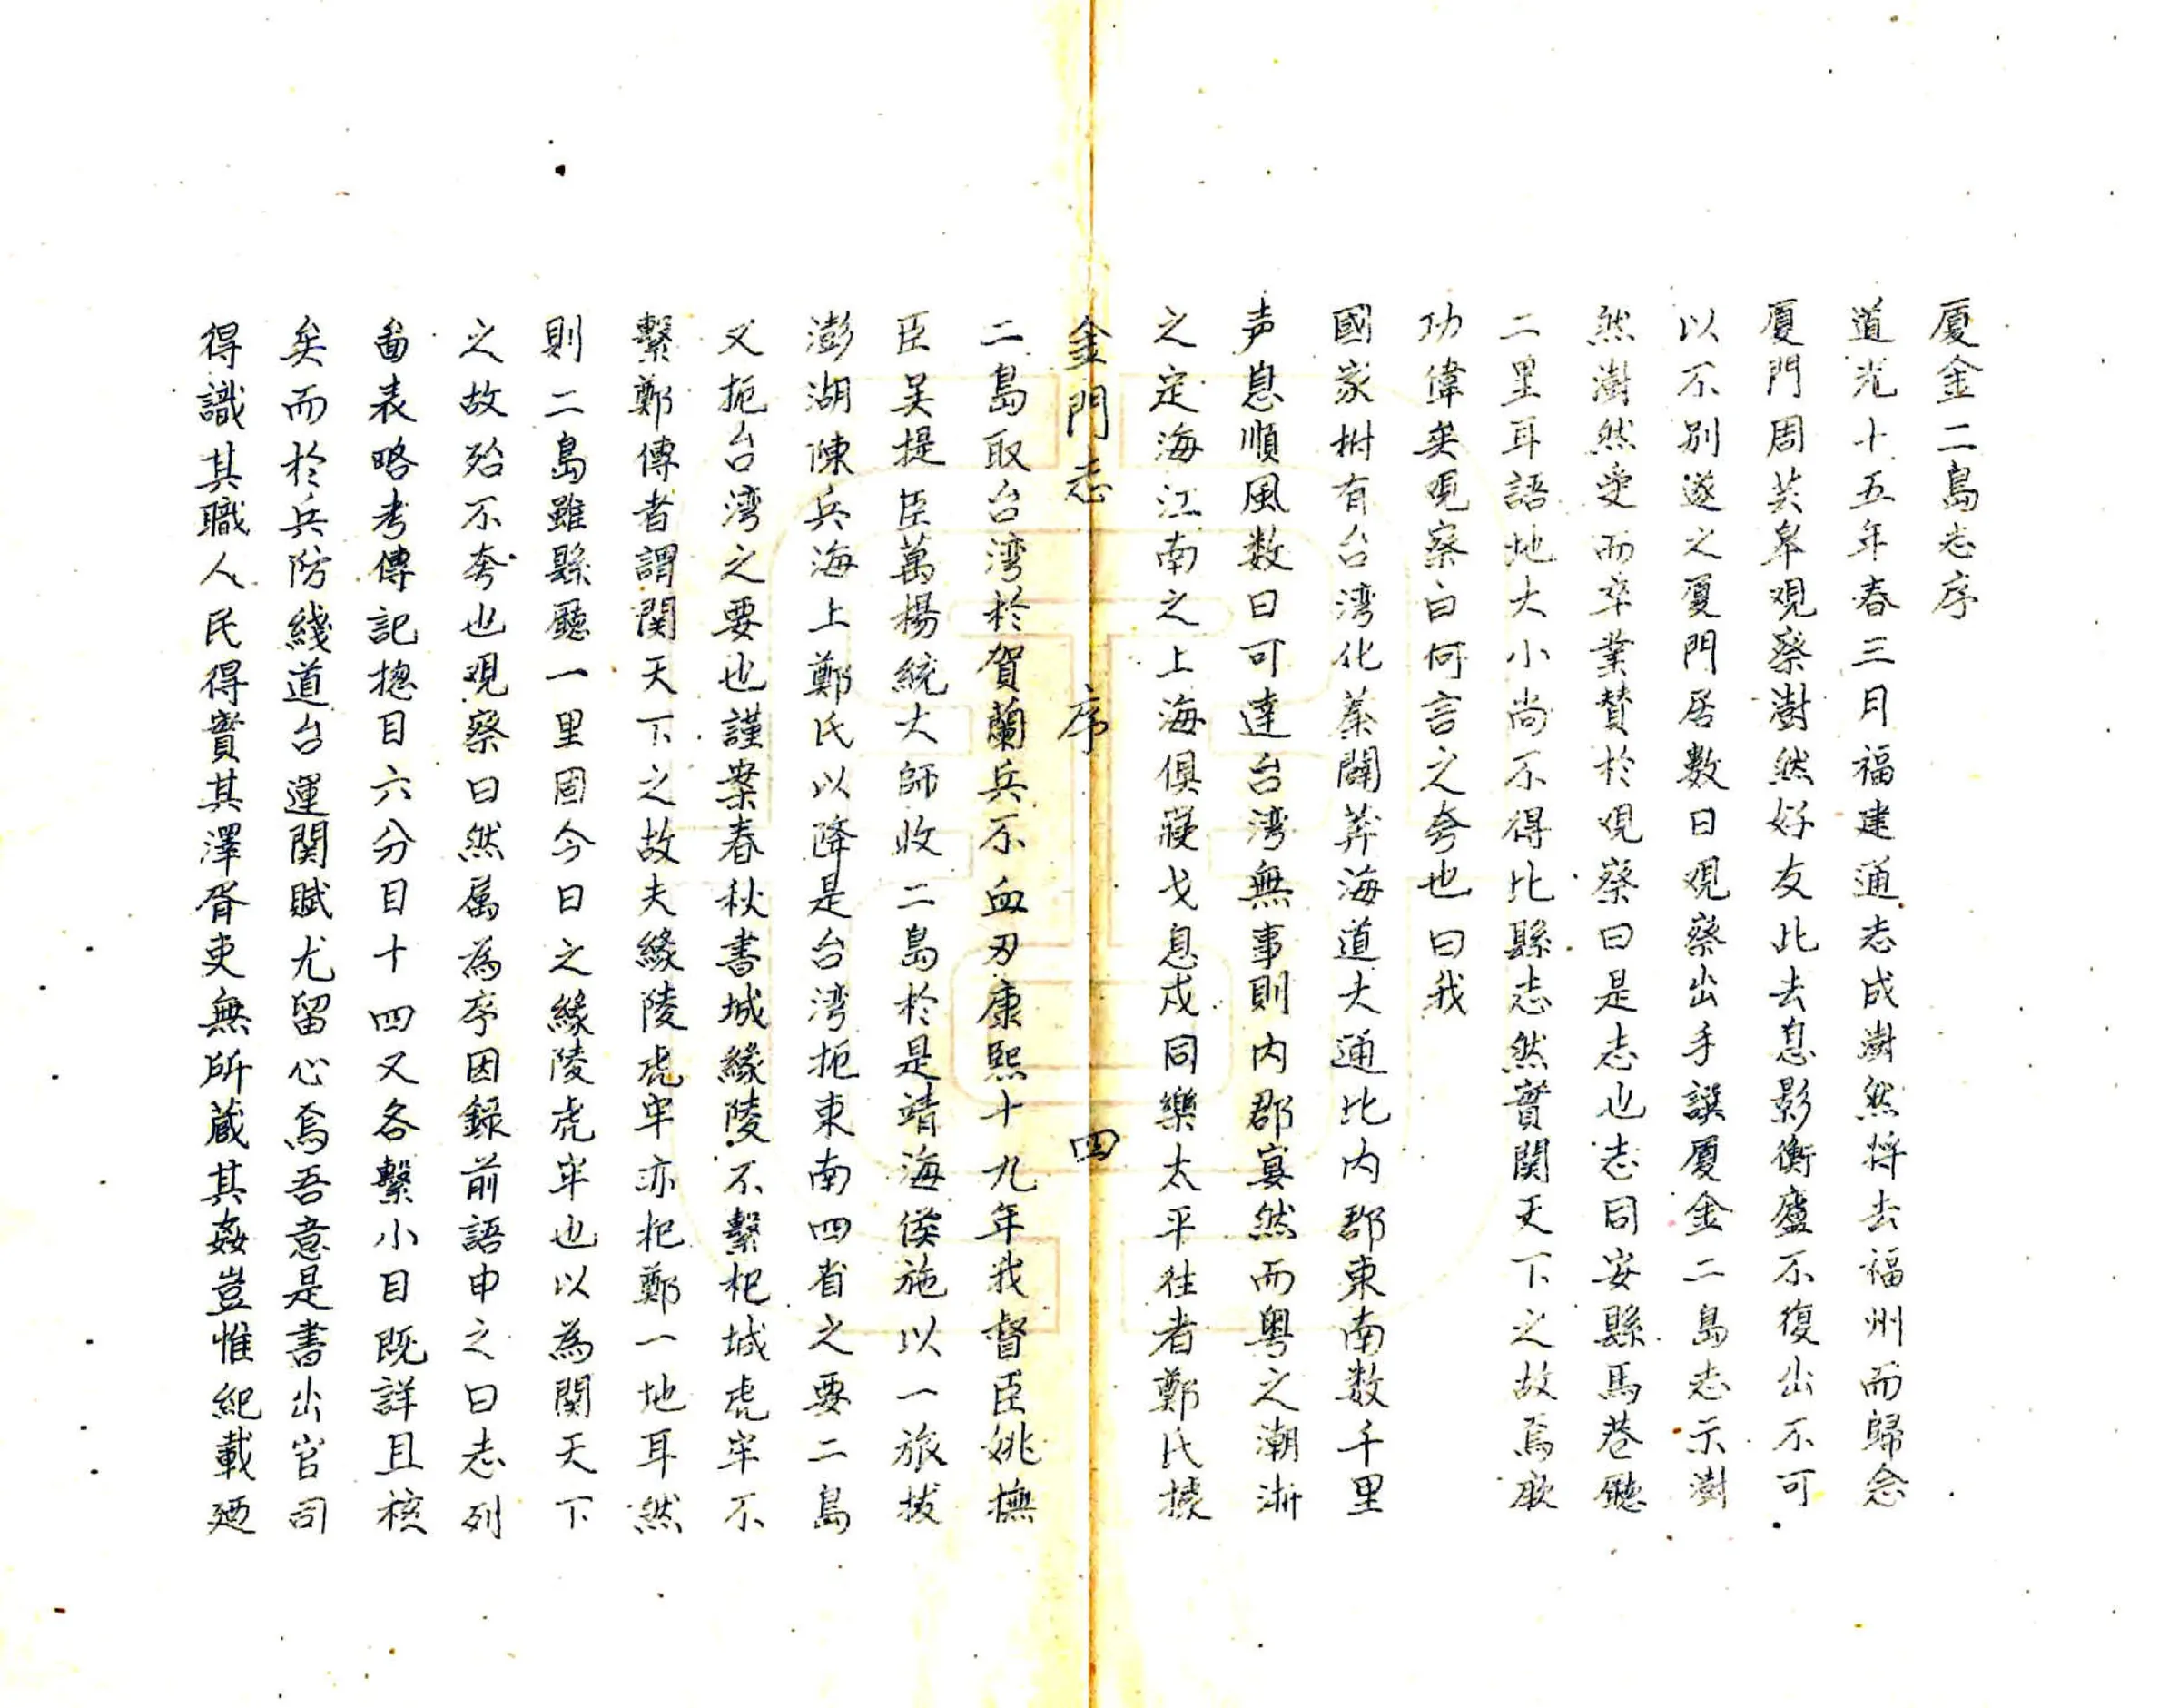 厦金二島志序
道光十五年春三月福建通志成澍然将去福州而歸念
厦門周芸皋观察澍然好友此去息影衡廬不復出不可
以不别遂之厦門居數日观察出手譔厦金二島志示澍
然澍然受而卒業賛於观察曰是志也志同安縣馬巷廳
二里耳語地大小尚不得比縣志然實関天下之故焉厥
功偉矣观察曰何言之夸也曰我
國家树有台湾化蓁闢莽海道大通比内郡東南数千里
声息順風数日可達台湾無事則内郡宴然而粤之潮浙
之定海江南之上海俱寢戈息戍同樂太平往者鄭氏據
金門志 序 四
二島取台湾於賀蘭兵不血刃康熙十九年我督臣姚撫
臣吴提臣萬楊統大師收二島於是靖海侯施以一旅拔
澎湖陳兵海上鄭氏以降是台湾扼東南四省之要二島
又扼台湾之要也謹案春秋書城緣陵不繫杞城虎牢不
繫鄭傳者謂関天下之故夫緣陵虎牢亦杞鄭一地耳然
則二島雖縣廳一里固今日之緣陵虎牢也以為関天下
之故殆不夸也观察曰然属為序因錄前語申之曰志列
啚表略考傳記揔目六分目十四又各繫小目既詳且核
矣而於兵防綫道台運関賦尤留心焉吾意是書出官司
得識其職人民得實其澤胥吏無所藏其姦豈惟紀載廼